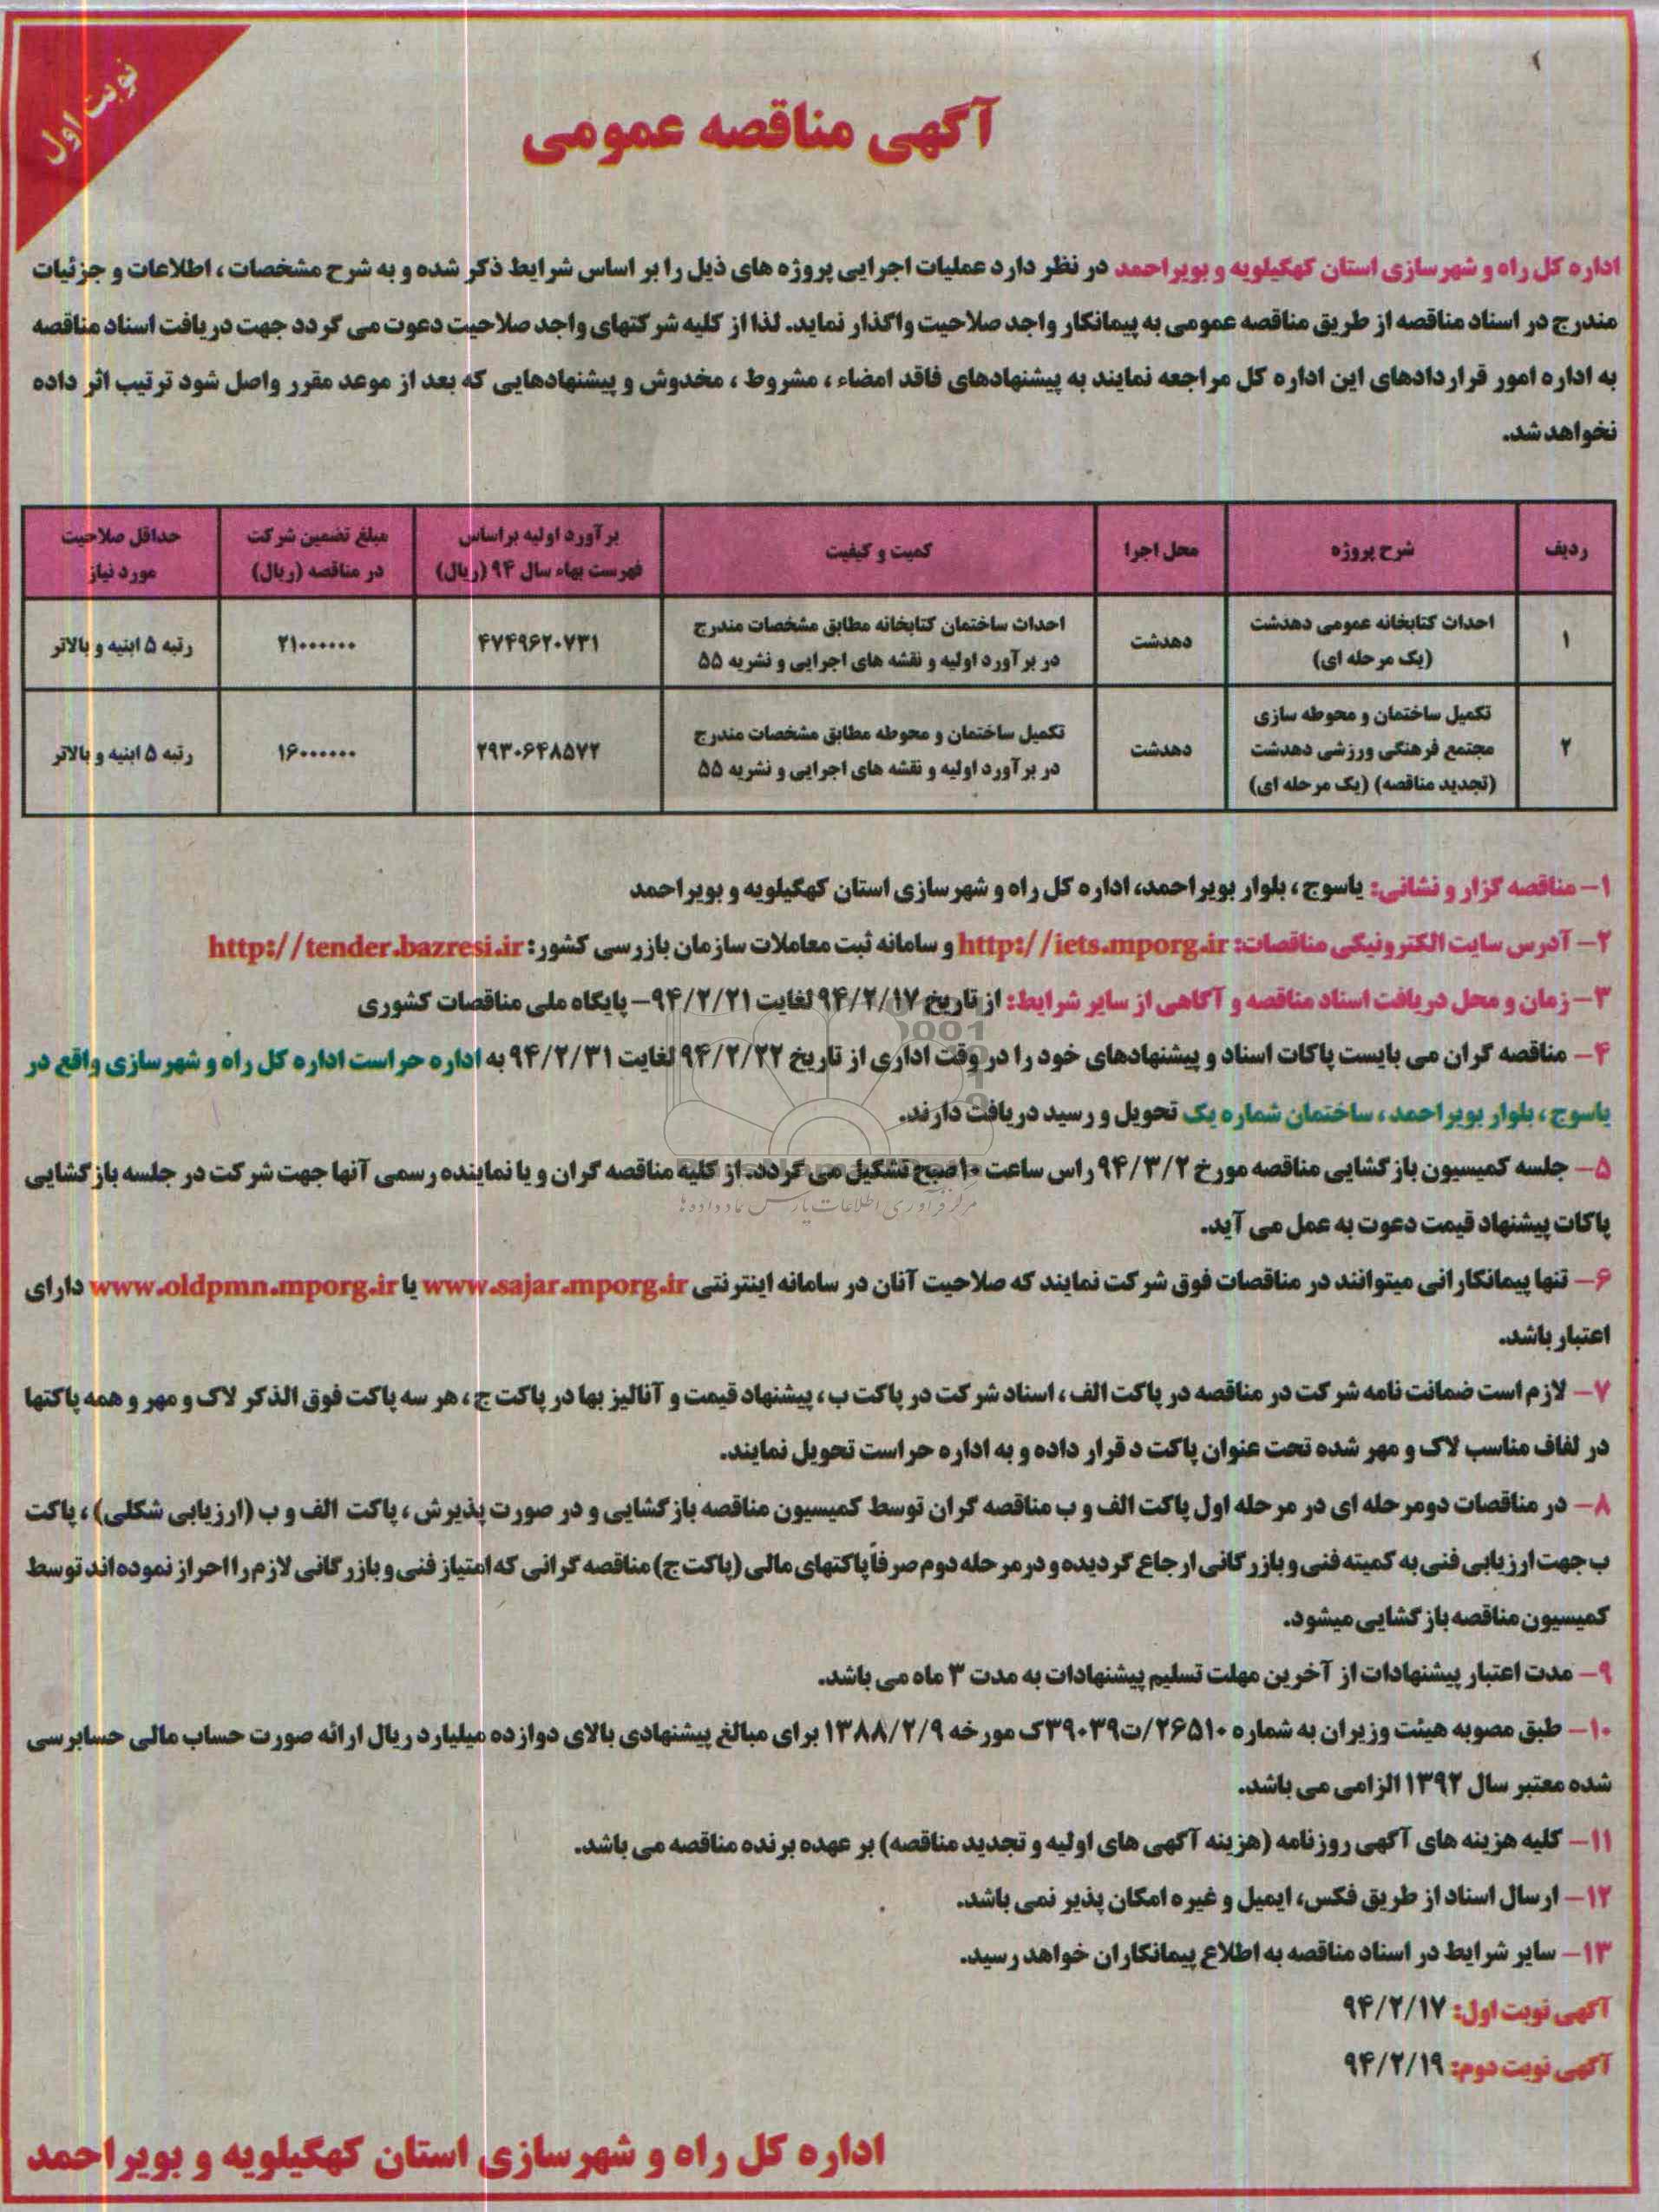 نوبت اول
آگهی مناقصه عمومی
اداره کل راه و شهرسازی استان کهگیلویه و بویراحمد در نظر دارد عملیات اجرایی پروژه های ذیل را بر اساس شرایط ذکر شده و به شرح مشخصات ، اطلاعات و جزئیات
مندرج در اسناد مناقصه از طریق مناقصه عمومی به پیمانکار واجد صلاحیت واگذار نماید. لذا از کلیه شرکتهای واجد صلاحیت دعوت می گردد جهت دریافت اسناد مناقصه
به اداره امور قراردادهای این اداره کل مراجعه نمایند به پیشنهادهای فاقد امضاء ، مشروط ، مخدوش و پیشنهادهایی که بعد از موعد مقرر واصل شود ترتیب اثر داده
نخواهد شد.
ردیف | شرح پروژه | محل اجرا | کمیت و کیفیت | برآورد اولیه براساس فهرست بهاء سال ۹۴ (ریال) | مبلغ تضمین شرکت در مناقصه (ریال) | حداقل صلاحیت مورد نیاز
۱ | احداث کتابخانه عمومی دهدشت (یک مرحله ای) | دهدشت | احداث ساختمان کتابخانه مطابق مشخصات مندرج در برآورد اولیه و نقشه های اجرایی و نشریه ۵۵ | ۴۷۴۹۶۲۰۷۳۱ | ۲۱۰۰۰۰۰۰ | رتبه ۵ ابنیه و بالاتر
۲ | تکمیل ساختمان و محوطه سازی مجتمع فرهنگی ورزشی دهدشت (تجدید مناقصه) (یک مرحله ای) | دهدشت | تکمیل ساختمان و محوطه مطابق مشخصات مندرج در برآورد اولیه و نقشه های اجرایی و نشریه ۵۵ | ۲۹۳۰۶۴۸۵۷۲ | ۱۶۰۰۰۰۰۰ | رتبه ۵ ابنیه و بالاتر
۱- مناقصه گزار و نشانی: یاسوج ، بلوار بویراحمد، اداره کل راه و شهرسازی استان کهگیلویه و بویراحمد
۲- آدرس سایت الکترونیکی مناقصات: http://iets.mporg.ir و سامانه ثبت معاملات سازمان بازرسی کشور: http://tender.bazresi.ir
۳- زمان و محل دریافت اسناد مناقصه و آگاهی از سایر شرایط: از تاریخ ۹۴/۲/۱۷ لغایت ۹۴/۲/۲۱- پایگاه ملی مناقصات کشوری
۴- مناقصه گران می بایست پاکات اسناد و پیشنهادهای خود را در وقت اداری از تاریخ ۹۴/۲/۲۲ لغایت ۹۴/۲/۳۱ به اداره حراست اداره کل راه و شهرسازی واقع در
یاسوج ، بلوار بویراحمد ، ساختمان شماره یک تحویل و رسید دریافت دارند.
۵- جلسه کمیسیون بازگشایی مناقصه مورخ ۹۴/۳/۲ راس ساعت ۱۰ صبح تشکیل می گردد. از کلیه مناقصه گران و یا نماینده رسمی آنها جهت شرکت در جلسه بازگشایی
مرکز فرآوری اطلاعات پارس نماد داده ها
پاکات پیشنهاد قیمت دعوت به عمل می آید.
۶- تنها پیمانکارانی میتوانند در مناقصات فوق شرکت نمایند که صلاحیت آنان در سامانه اینترنتی www.sajar.mporg.ir یا www.oldpmn.mporg.ir دارای
اعتبار باشد.
۷- لازم است ضمانت نامه شرکت در مناقصه در پاکت الف ، اسناد شرکت در پاکت ب ، پیشنهاد قیمت و آنالیز بها در پاکت ج ، هر سه پاکت فوق الذکر لاک و مهر و همه پاکتها
در لفاف مناسب لاک و مهر شده تحت عنوان پاکت د قرار داده و به اداره حراست تحویل نمایند.
۸- در مناقصات دومرحله ای در مرحله اول پاکت الف و ب مناقصه گران توسط کمیسیون مناقصه بازگشایی و در صورت پذیرش ، پاکت الف و ب (ارزیابی شکلی) ، پاکت
ب جهت ارزیابی فنی به کمیته فنی و بازرگانی ارجاع گردیده و در مرحله دوم صرفاً پاکتهای مالی (پاکت ج) مناقصه گرانی که امتیاز فنی و بازرگانی لازم را احراز نموده اند توسط
کمیسیون مناقصه بازگشایی میشود.
۹- مدت اعتبار پیشنهادات از آخرین مهلت تسلیم پیشنهادات به مدت ۳ ماه می باشد.
۱۰- طبق مصوبه هیئت وزیران به شماره ۲۶۵۱۰/ت۳۹۰۳۹ک مورخه ۱۳۸۸/۲/۹ برای مبالغ پیشنهادی بالای دوازده میلیارد ریال ارائه صورت حساب مالی حسابرسی
شده معتبر سال ۱۳۹۲ الزامی می باشد.
۱۱- کلیه هزینه های آگهی روزنامه (هزینه آگهی های اولیه و تجدید مناقصه) بر عهده برنده مناقصه می باشد.
۱۲- ارسال اسناد از طریق فکس، ایمیل و غیره امکان پذیر نمی باشد.
۱۳- سایر شرایط در اسناد مناقصه به اطلاع پیمانکاران خواهد رسید.
آگهی نوبت اول: ۹۴/۲/۱۷
آگهی نوبت دوم: ۹۴/۲/۱۹
اداره کل راه و شهرسازی استان کهگیلویه و بویراحمد